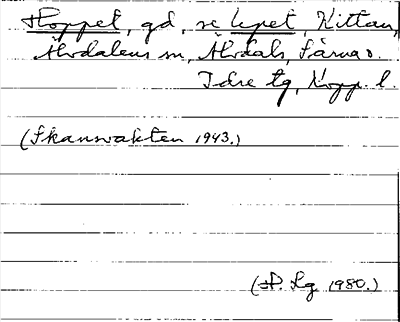 Hoppet, gd, se Lepet, Kittan,
Älvdalens sn, Älvdals, Särna o.
Idre tg, Kopp. l.
(Skanvakten 1943.)
(H. Lg 1980.)